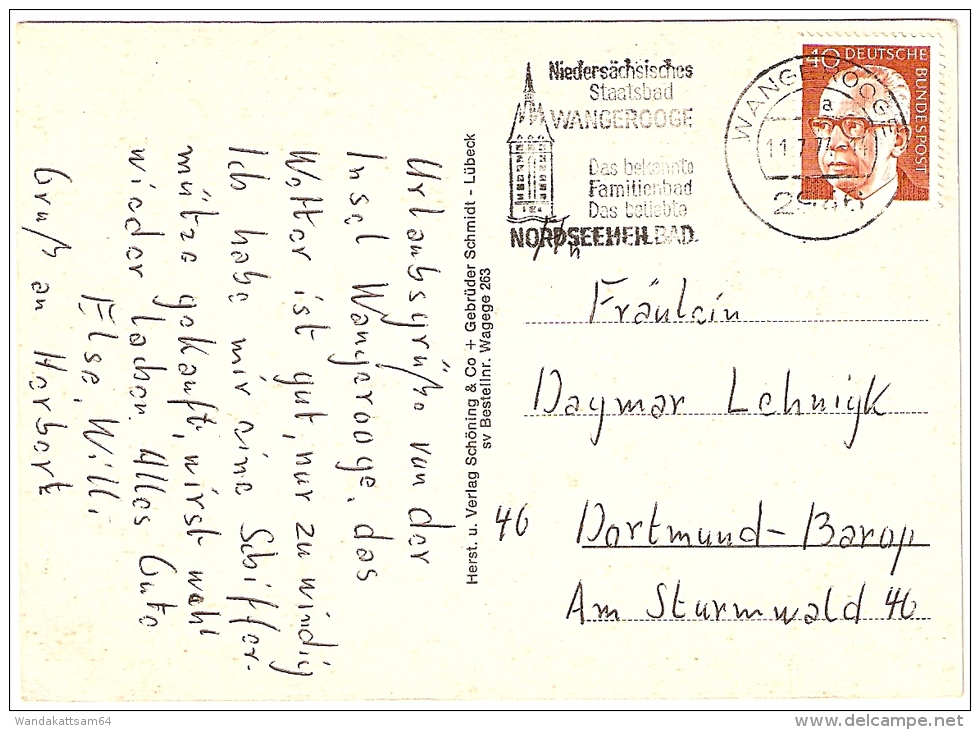 Urlaubsgrüße von der
Insel Wangerooge, das
Wetter ist gut, nur zu windig
Ich habe mir eine Schiffer-
mütze gekauft, wirst wohl
wieder lachen. Alles Gute
Else, Willi,
Gruß an Herbert
Herst. u. Verlag Schöning & Co + Gebrüder Schmidt - Lübeck
sv Bestellnr. Wagege 263
Niedersächsisches
Staatsbad
WANGEROOGE
Das bekannte
Familienbad
Das beliebte
NORDSEEHEILBAD.
WANGEROOGE
a
11.7.
2946
40 DEUTSCHE
BUNDESPOST
Fräulein
Dagmar Lehnigk
46 Dortmund-Barop
Am Sturmwald 46
Wandakattsam64
delcampe.net